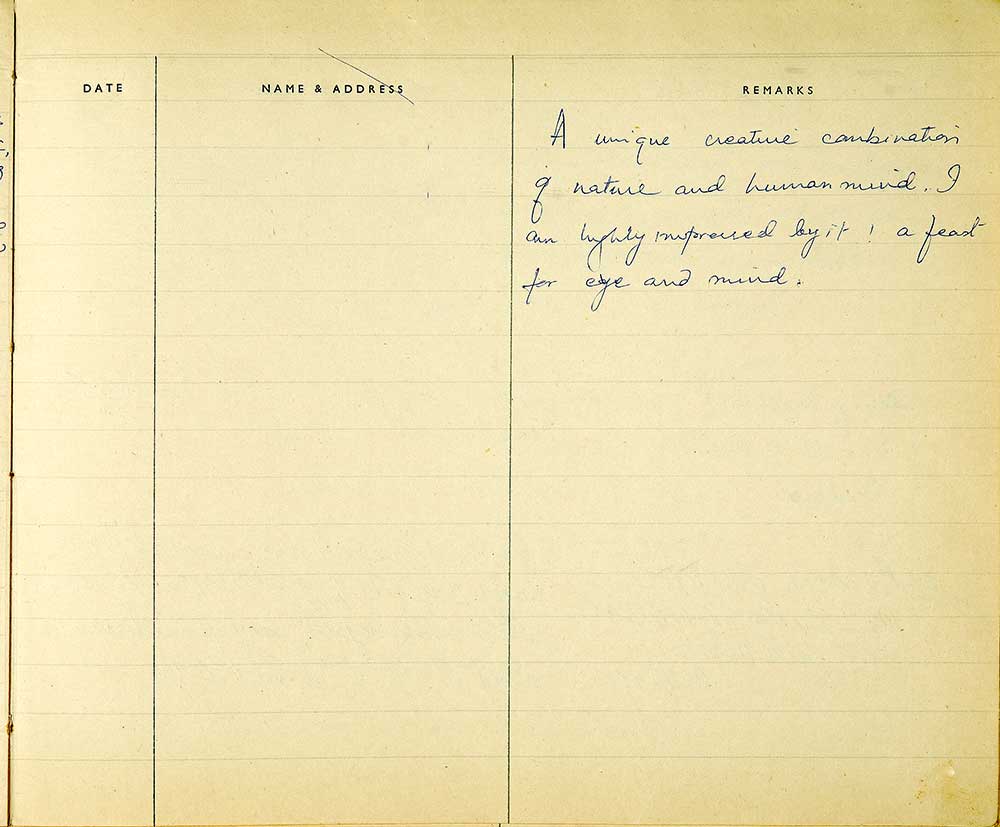 DATE NAME & ADDRESS REMARKS
A unique creative combination
of nature and human mind. I
am highly impressed by it! a feast
for eye and mind.